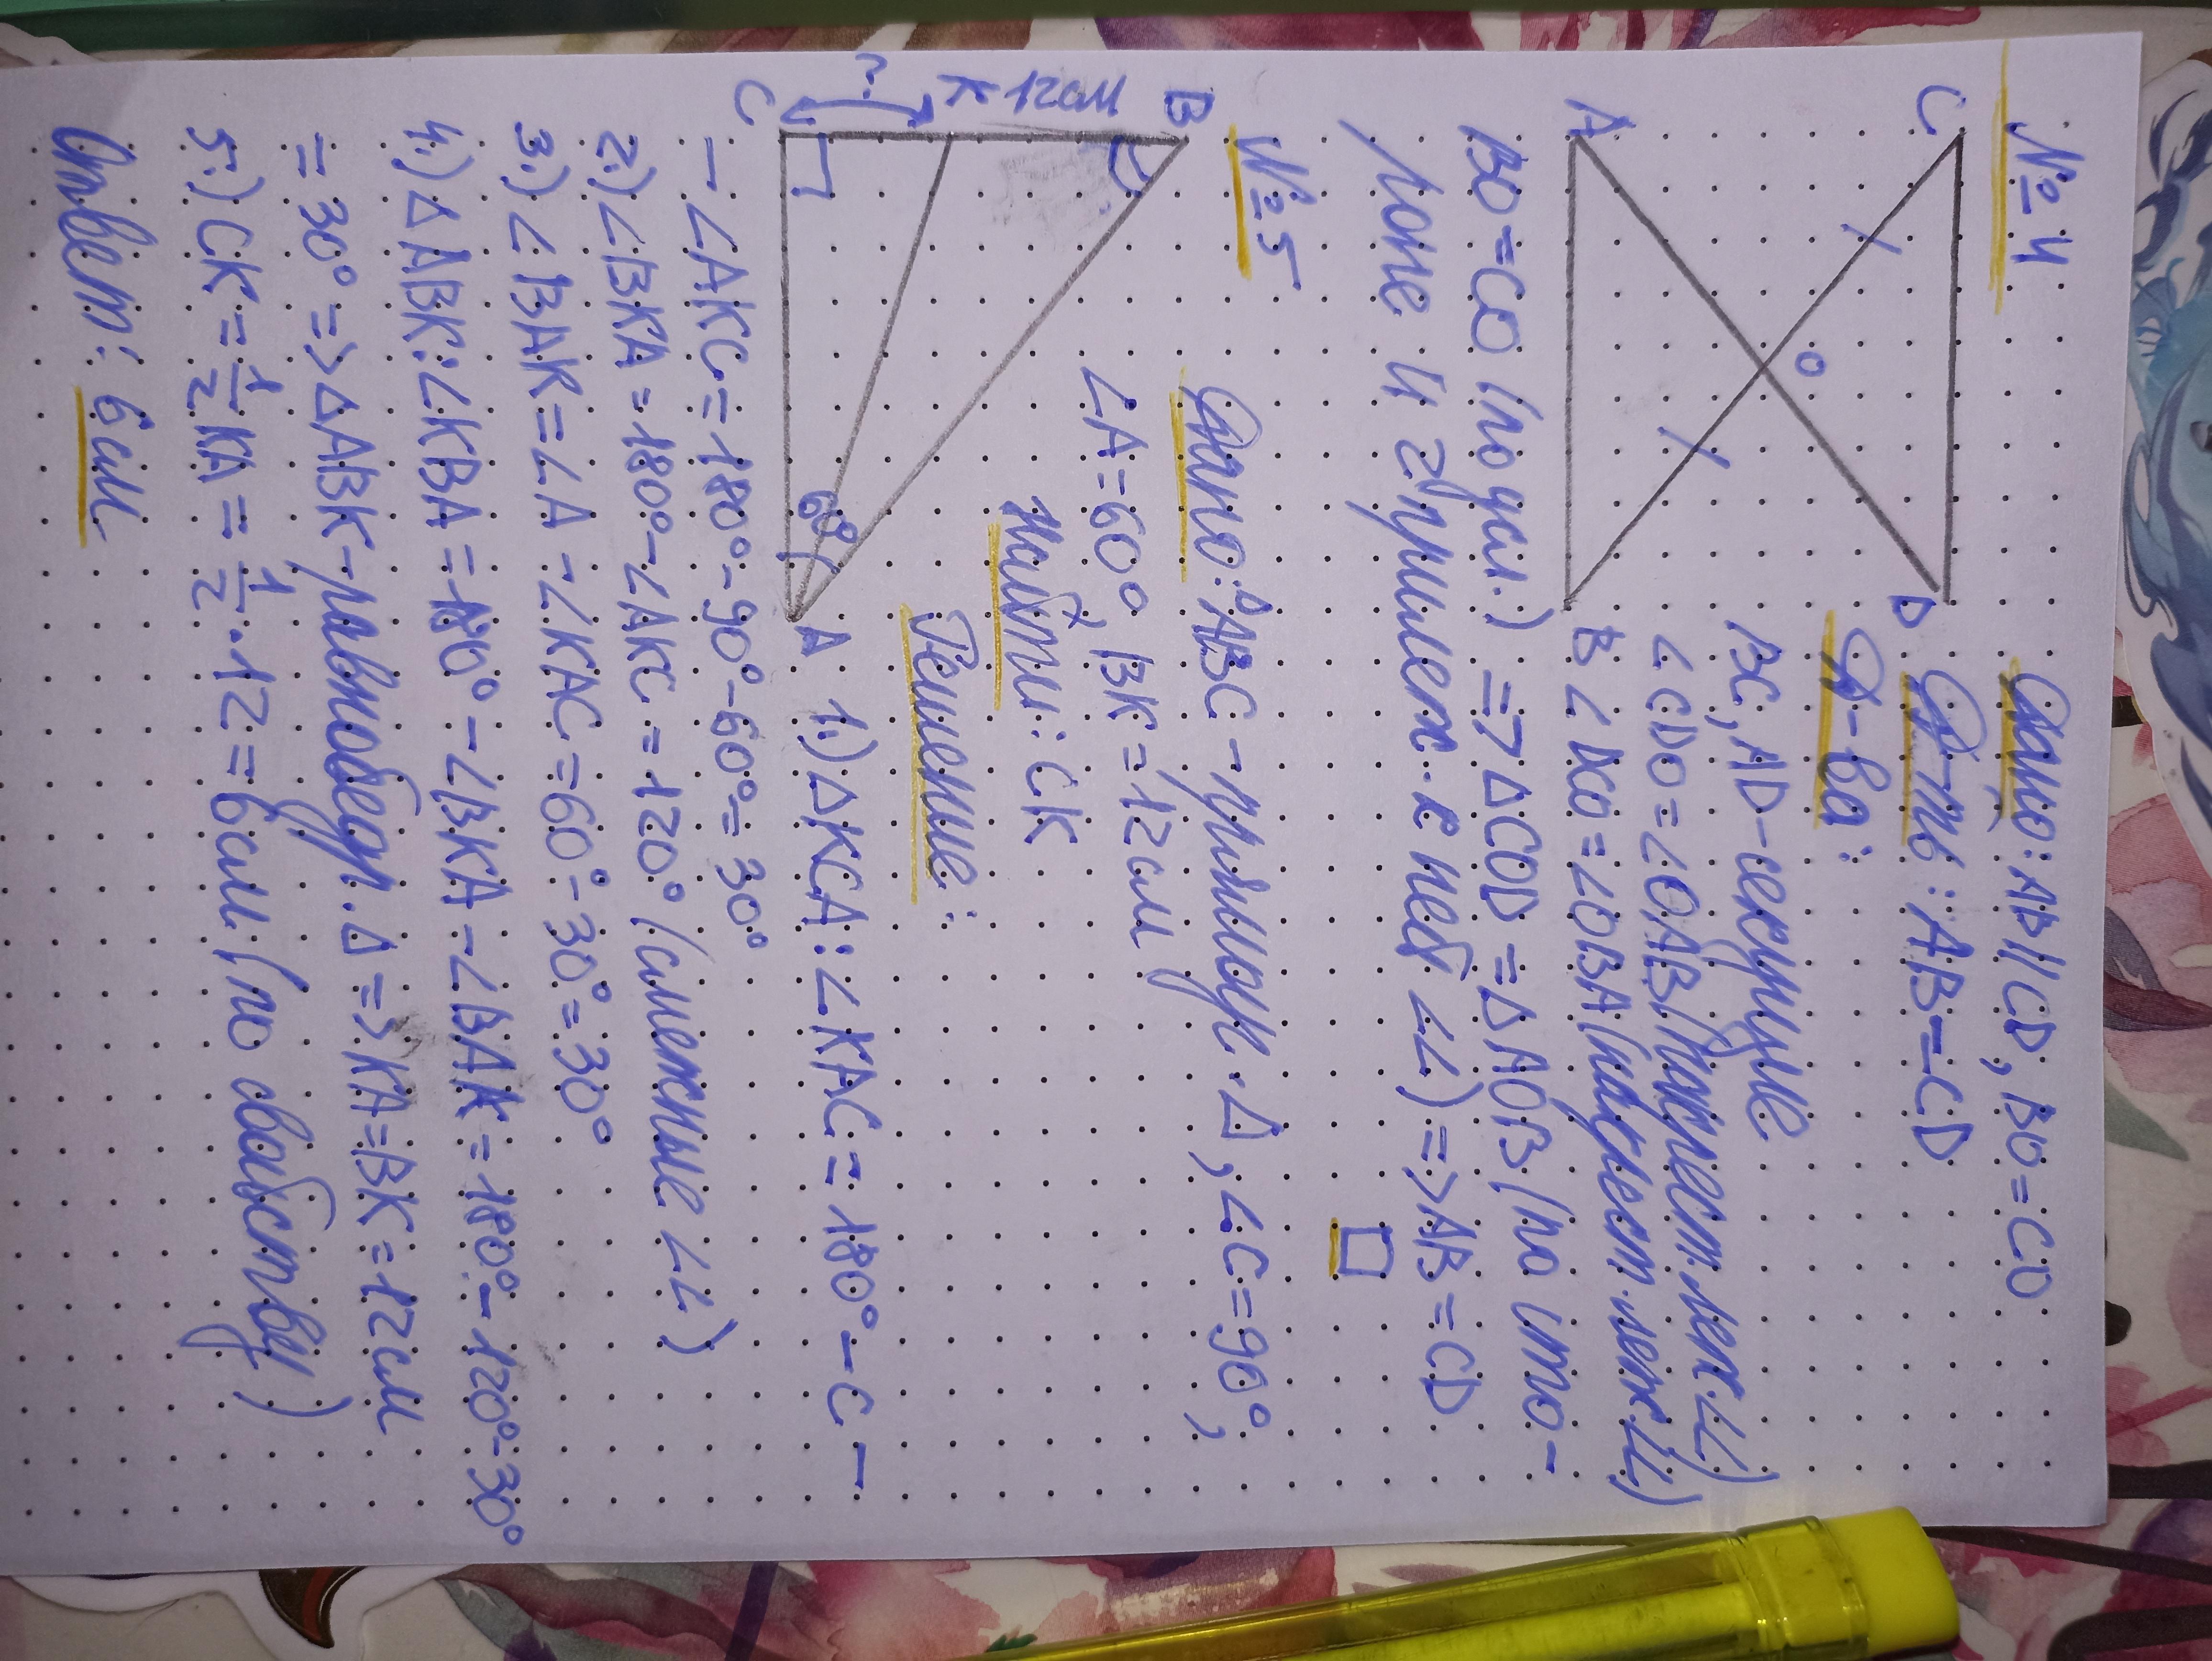 №4
Дано: AB || CD, BO = CO
Д-ть: AB = CD
Д-ва:
BC, AD - секущие
∠CDO = ∠OAB (накрест. леж. ∠∠)
∠DCO = ∠OBA (накрест. леж. ∠∠)
BO = CO (по усл.) => ΔCOD = ΔAOB (по сто-
роне и 2 прилеж. к ней ∠∠) => AB = CD
□
C
D
O
A
B
№5
Дано: ΔABC - прямоуг. Δ, ∠C = 90°,
∠A = 60°, BK = 12 см
Найти: CK
Решение:
B
12 см
K
?
C
60°
A
1.) ΔKCA: ∠KAC = 180° - C -
- ∠AKC = 180° - 90° - 60° = 30°
2.) ∠BKA = 180° - ∠AKC = 120° (смежные ∠∠)
3.) ∠BAK = ∠A - ∠KAC = 60° - 30° = 30°
4.) ΔABK: ∠KBA = 180° - ∠BKA - ∠BAK = 180° - 120° - 30°
= 30° => ΔABK - равнобедр. Δ => KA = BK = 12 см
5.) CK = 1/2 KA = 1/2 · 12 = 6 см (по свойству)
Ответ: 6 см